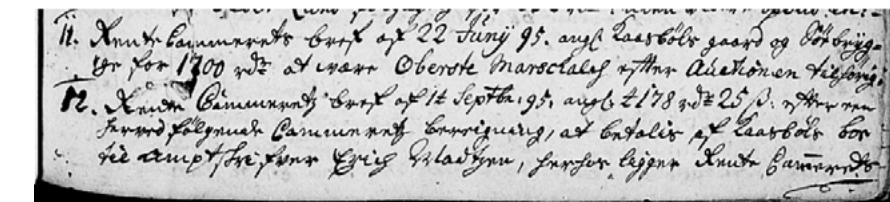 11. Rente Cammerets bref af 22 Junij 95. angl. Laasbøls gaard og Søebryg-
ge for 1700 rdr at være Oberste Marschalch efter Auctionen tilhørig.
12. Rente Cammeretz bref af 14 Septbr. 95. angl. 4178 rdr 25 ß. efter een
herved følgende Cammeretz bereigning, at betalis af Laasbøls boe
til Amptskrifver Erich Madtzen, herhos ligger Rente Camerets